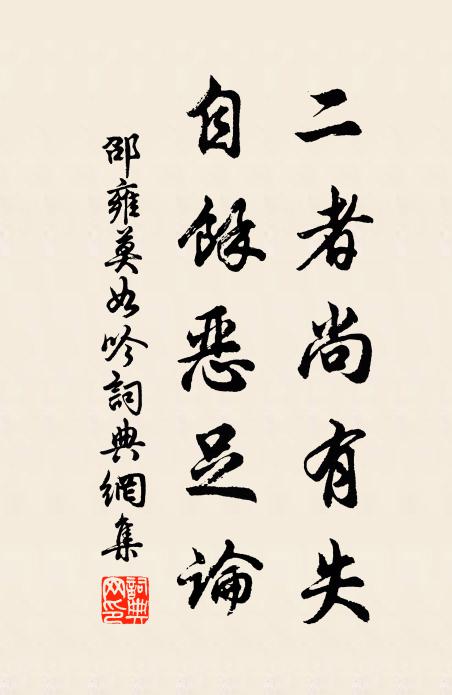 二者尚有失
自餘惡足論
邵雍莫如吟詞典網集
詞典网印